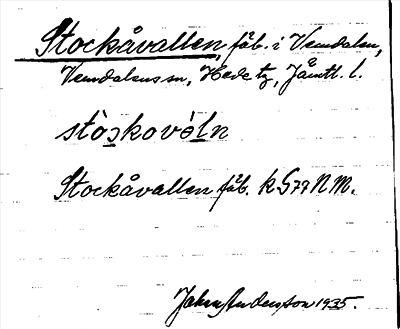 Stockåvallen, fäb. i Vemdalen,
Vemdalens sn, Hede tg, Jämtl. l.
stòskovèln
Stockåvallen fäb. k G79 N M.
John Anderston 1935.